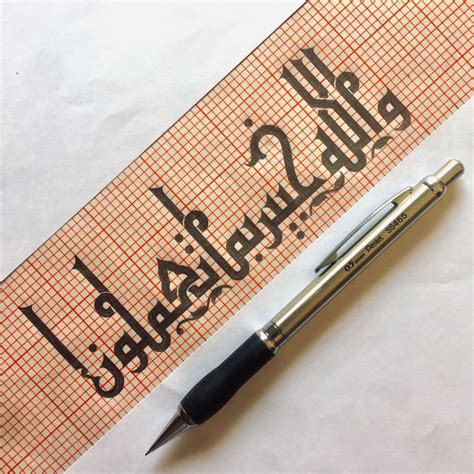 والله خبير بما تعملون
0.5mm Pentel SS465